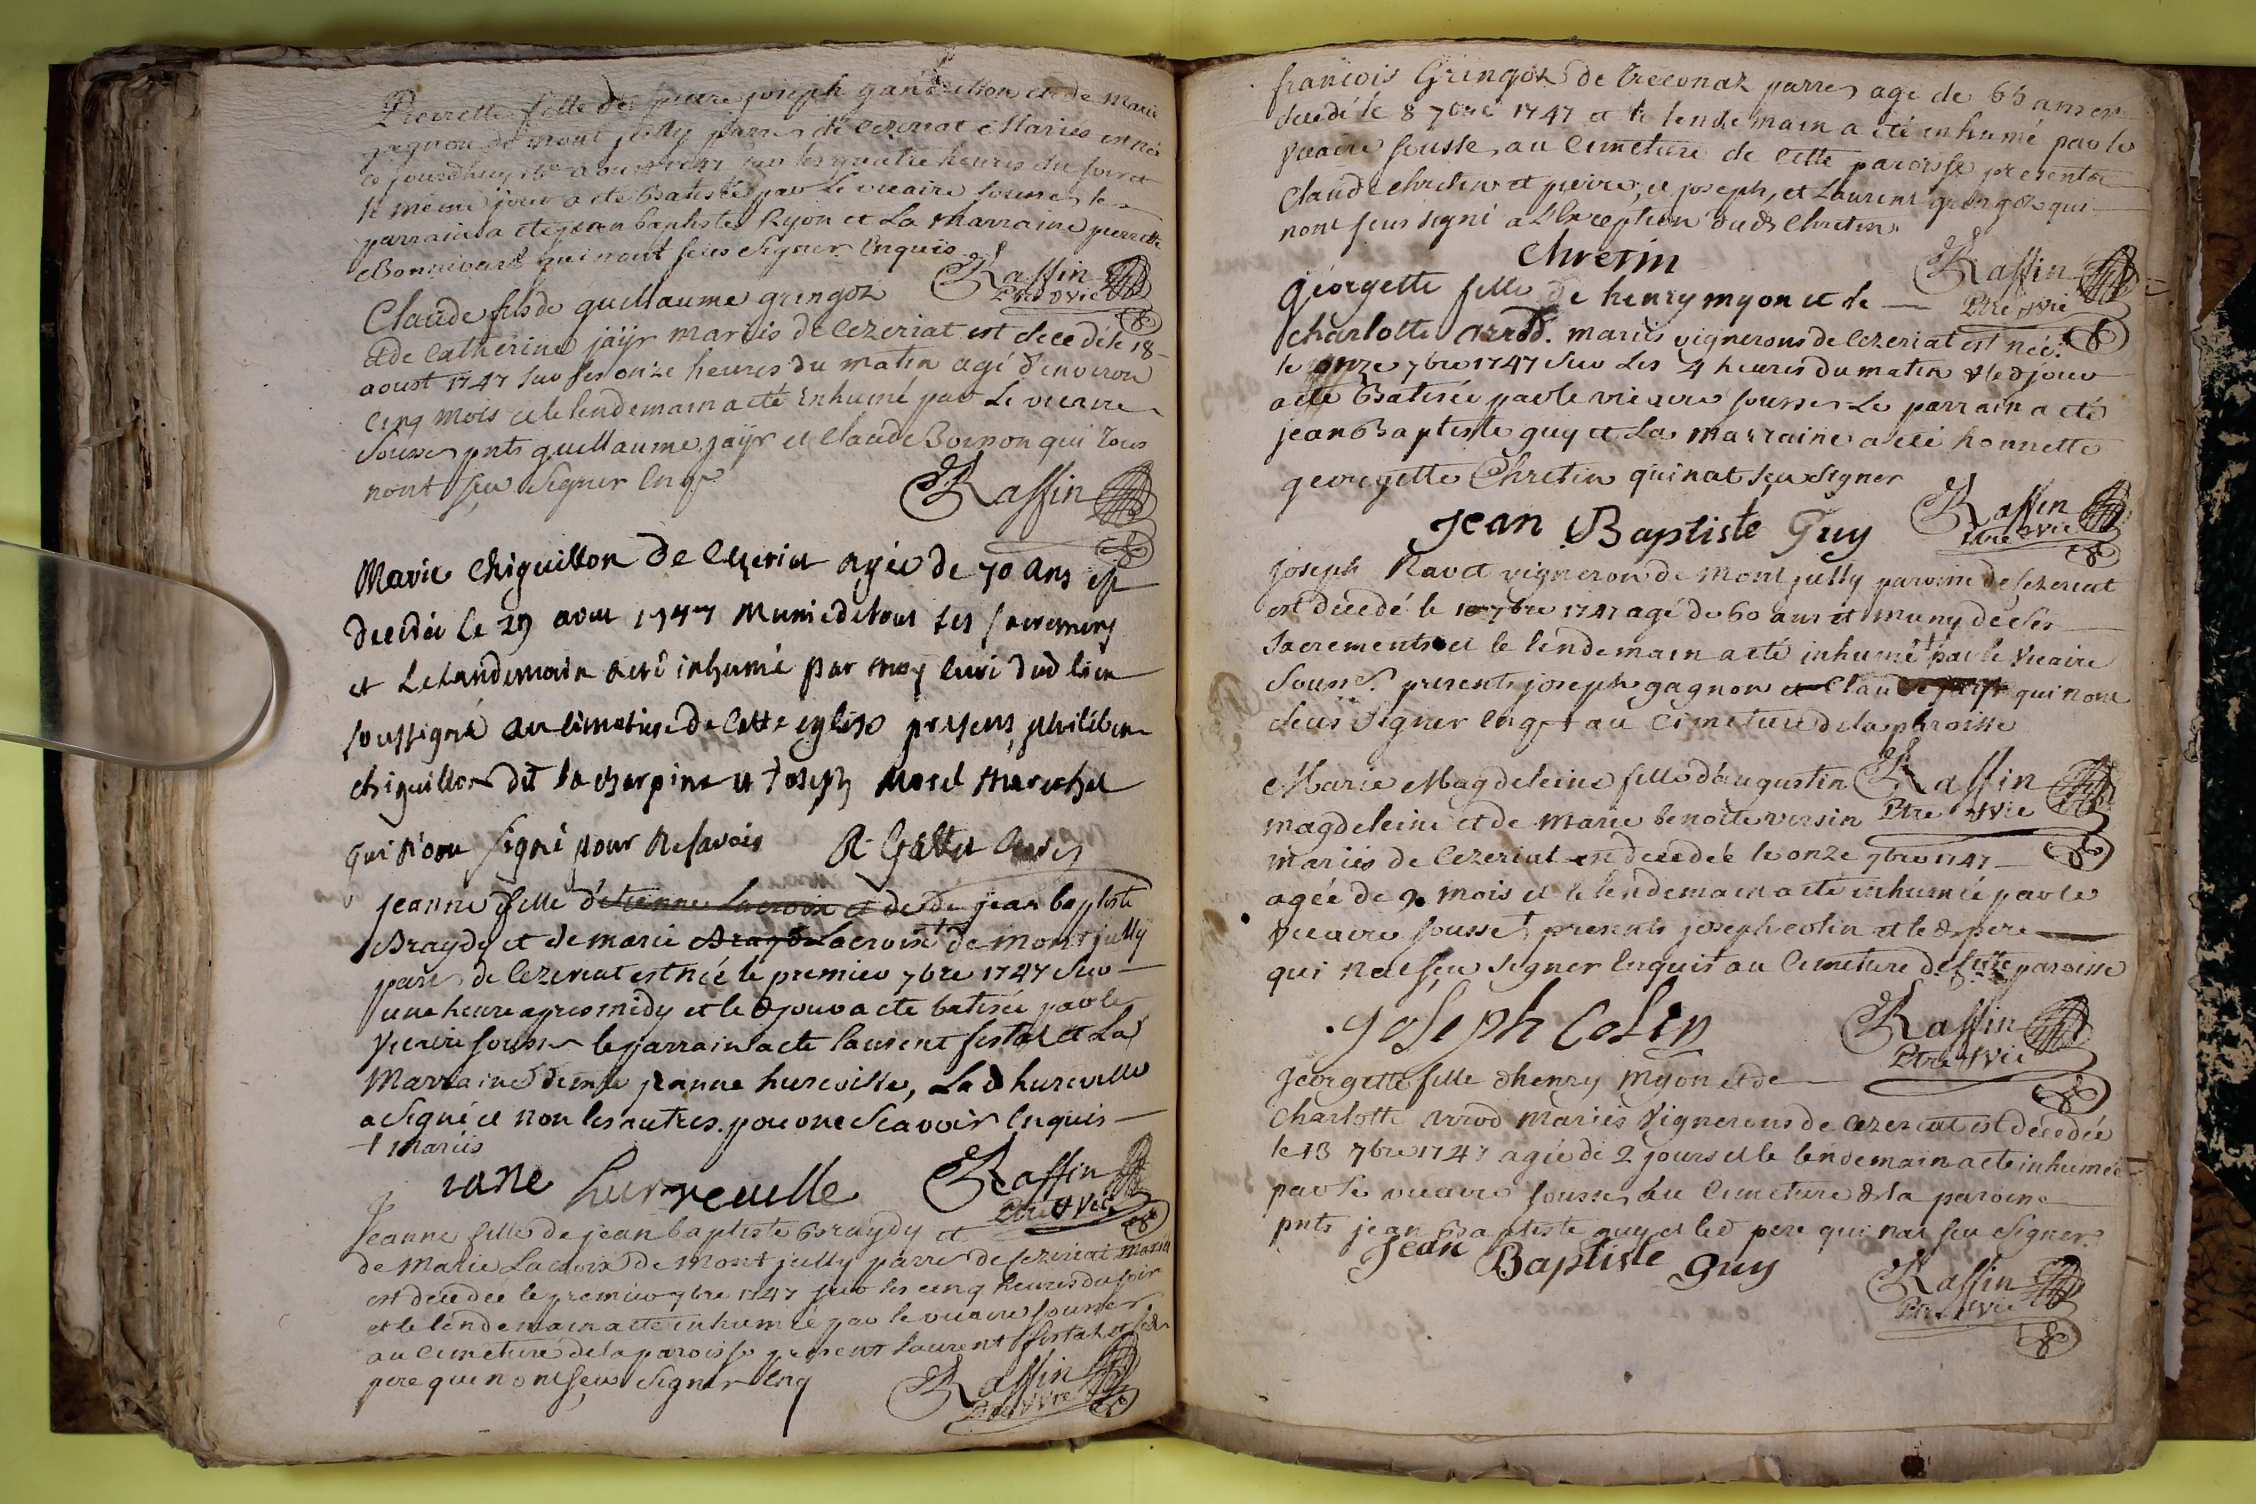 Pierrette fille de pierre joseph gandillion et de Marie
gagnon de mont jully parre de Cezeriat Maries est née
ce jourdhuy aoust 1747 sur les quatre heures du soir et
le meme jour a eté Batisée par Le vicaire sousse le
parrain a ete jean baptiste Ryon et La Marraine pierrette
Bonnivard qui nont sceu Signer Enquis
Raffin
Ptre Vic
Claude fils de guillaume gringoz
et de Catherine jaÿr mariés de Cezeriat est decedé le 18
aoust 1747 sur les onze heures du matin agé d'environ
Cinq mois et le lendemain a eté Enhumé par Le vicaire
Sousse pnts guillaume jaÿr et Claude Boisson qui tous
nont sçu Signer Enq
Raffin
Marie Chiguillon De Ceseriat Agée de 70 Ans est
Decedée Le 29 aout 1747 Munie de tous ses sacremens
et Le landemain a eté inhumé par moy Curé dud lieu
soussigné au simetiere de Cette eglise presens philibert
chiguillon dit la charpine et Joseph Morel Marechal
Qui n'ont signé pour ne savoir R. Gallet Curé
jeanne fille d'étienne Lacroix et de de jean baptiste
Braydy et de marie Brayd Lacroix + de mont jully
parre de Cezeriat est née le premier 7bre 1747 sur
une heure apres midy et led jour a ete batisée par le
Vicaire sousse le parrain a ete laurent festaz et La
Marraine demlle jeanne hureville, La d hureville
a Signé et non les autres pour ne Scavoir Enquis
+ Mariés
iane hurreuille
Raffin
Ptre Vic
Jeanne fille de jean baptiste Braydy et
de Marie Lacroix de Mont jully parre de Cezeriat Mariés
est decedée le premier 7bre 1747 sur les cinq heures du soir
et le lendemain a eté inhumée par le vicaire sousse
au Cimetiere de la paroisse presens Laurent festaz et led
pere qui nont sçeu Signer Enq
Raffin
Ptre Vic
françois Gringoz de Treconaz parre agé de 65 ans est
decedé le 8 7bre 1747 et le lendemain a eté inhumé par le
Vicaire sousse au Cimetiere de Cette paroisse presents
Claude Chretin et pierre, et joseph, et Laurent gringoz qui
nont sceu signé a l'Exception dud Chretin
Chretin
Raffin
Ptre Vic
georgette fille de henry myon et de
Charlotte mariés vignerons de Cezeriat est née
le onze 7bre 1747 sur Les 4 heures du matin et led jour
a eté Batisée par le vicaire sousse Le parrain a eté
jean Baptiste guy et La Marraine a eté honnette
georgette Chretin qui nat sçu Signer
Jean Baptiste Guy
Raffin
Ptre Vic
Joseph Ravet vigneron de Mont jully paroisse de Cezeriat
est decedé le 10 7bre 1747 agé de 60 ans et muny de ses
Sacrements et le lendemain a eté inhumé + par le Vicaire
Sousse presents joseph gagnon et Claude qui nont
sceu Signer Enq + au Cimetiere de la paroisse
Marie Magdeleine fille d'augustin
magdeleine et de Marie benoite voisin
mariés de Cezeriat est decedée le onze 7bre 1747
agée de 2 mois et le lendemain a eté inhumée par le
Vicaire sousse + presents joseph colin et led pere
qui na sçu Signer Enquis + au Cimetiere de Cette paroisse
Raffin
Ptre Vic
Joseph Colin
Raffin
Ptre Vic
georgette fille d'henry Myon et de
Charlotte Mariés Vignerons de Cezeriat est decedée
le 13 7bre 1747 agée de 2 jours et le lendemain a eté inhumée
par le vicaire sousse au Cimetiere de la paroisse
pnts jean Baptiste guy et led pere qui nat sçu Signer
Jean Baptiste guy
Raffin
Ptre Vic